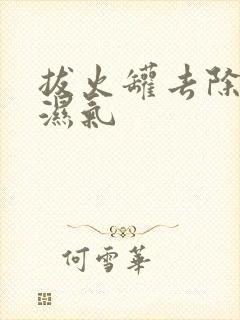 拔火罐去除
濕氣
何雪華